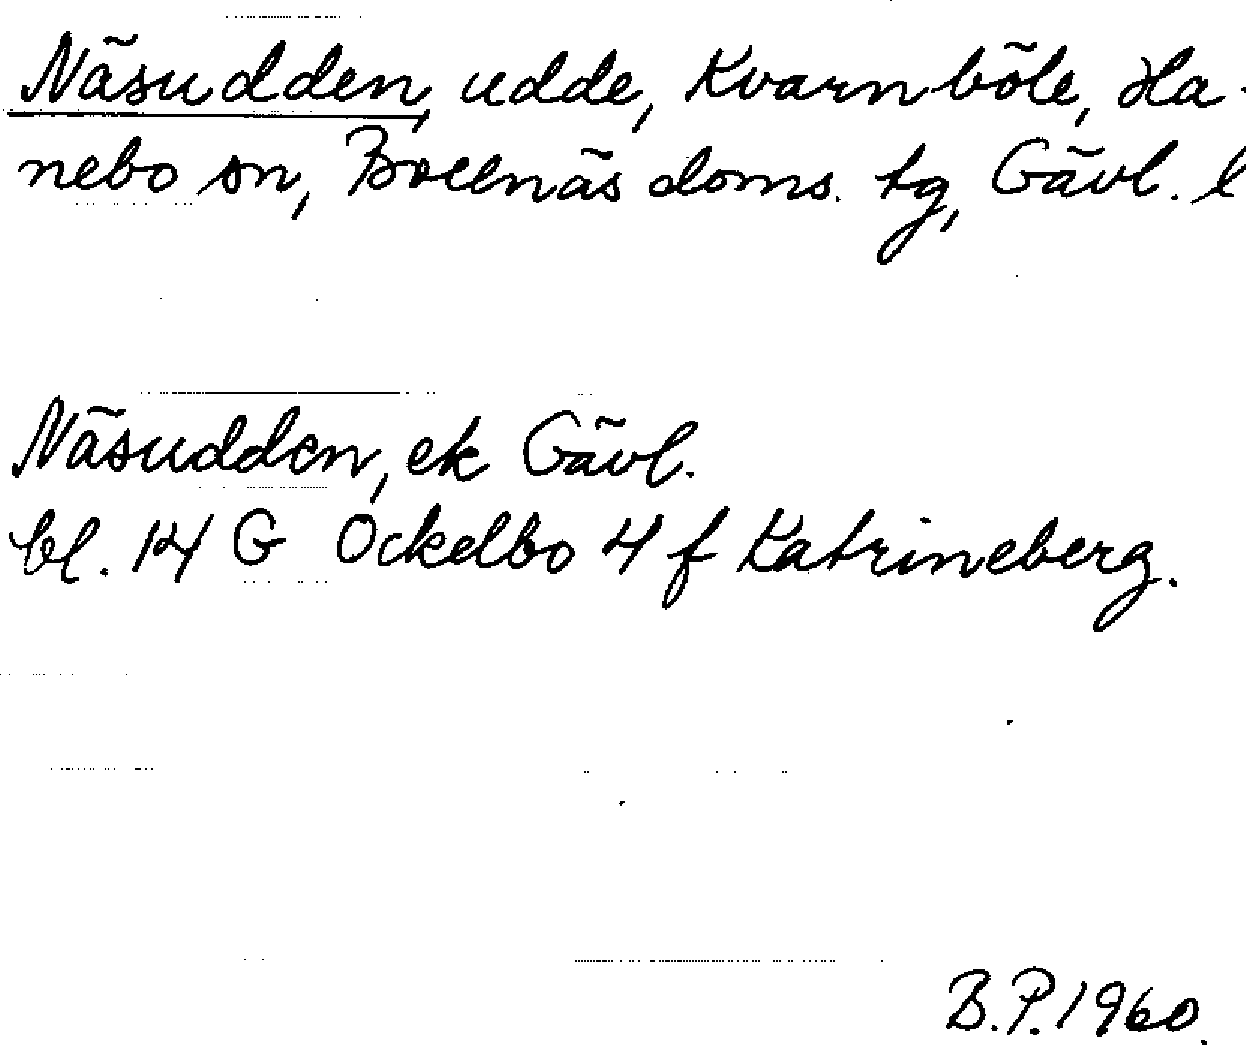 Näsudden, udde, Kvarnböle, Ha-
nebo sn, Bollnäs doms. tg, Gävl. l
Näsudden, ek Gävl.
bl. 14 G Ockelbo 4 f Katrineberg.
B.P. 1960.